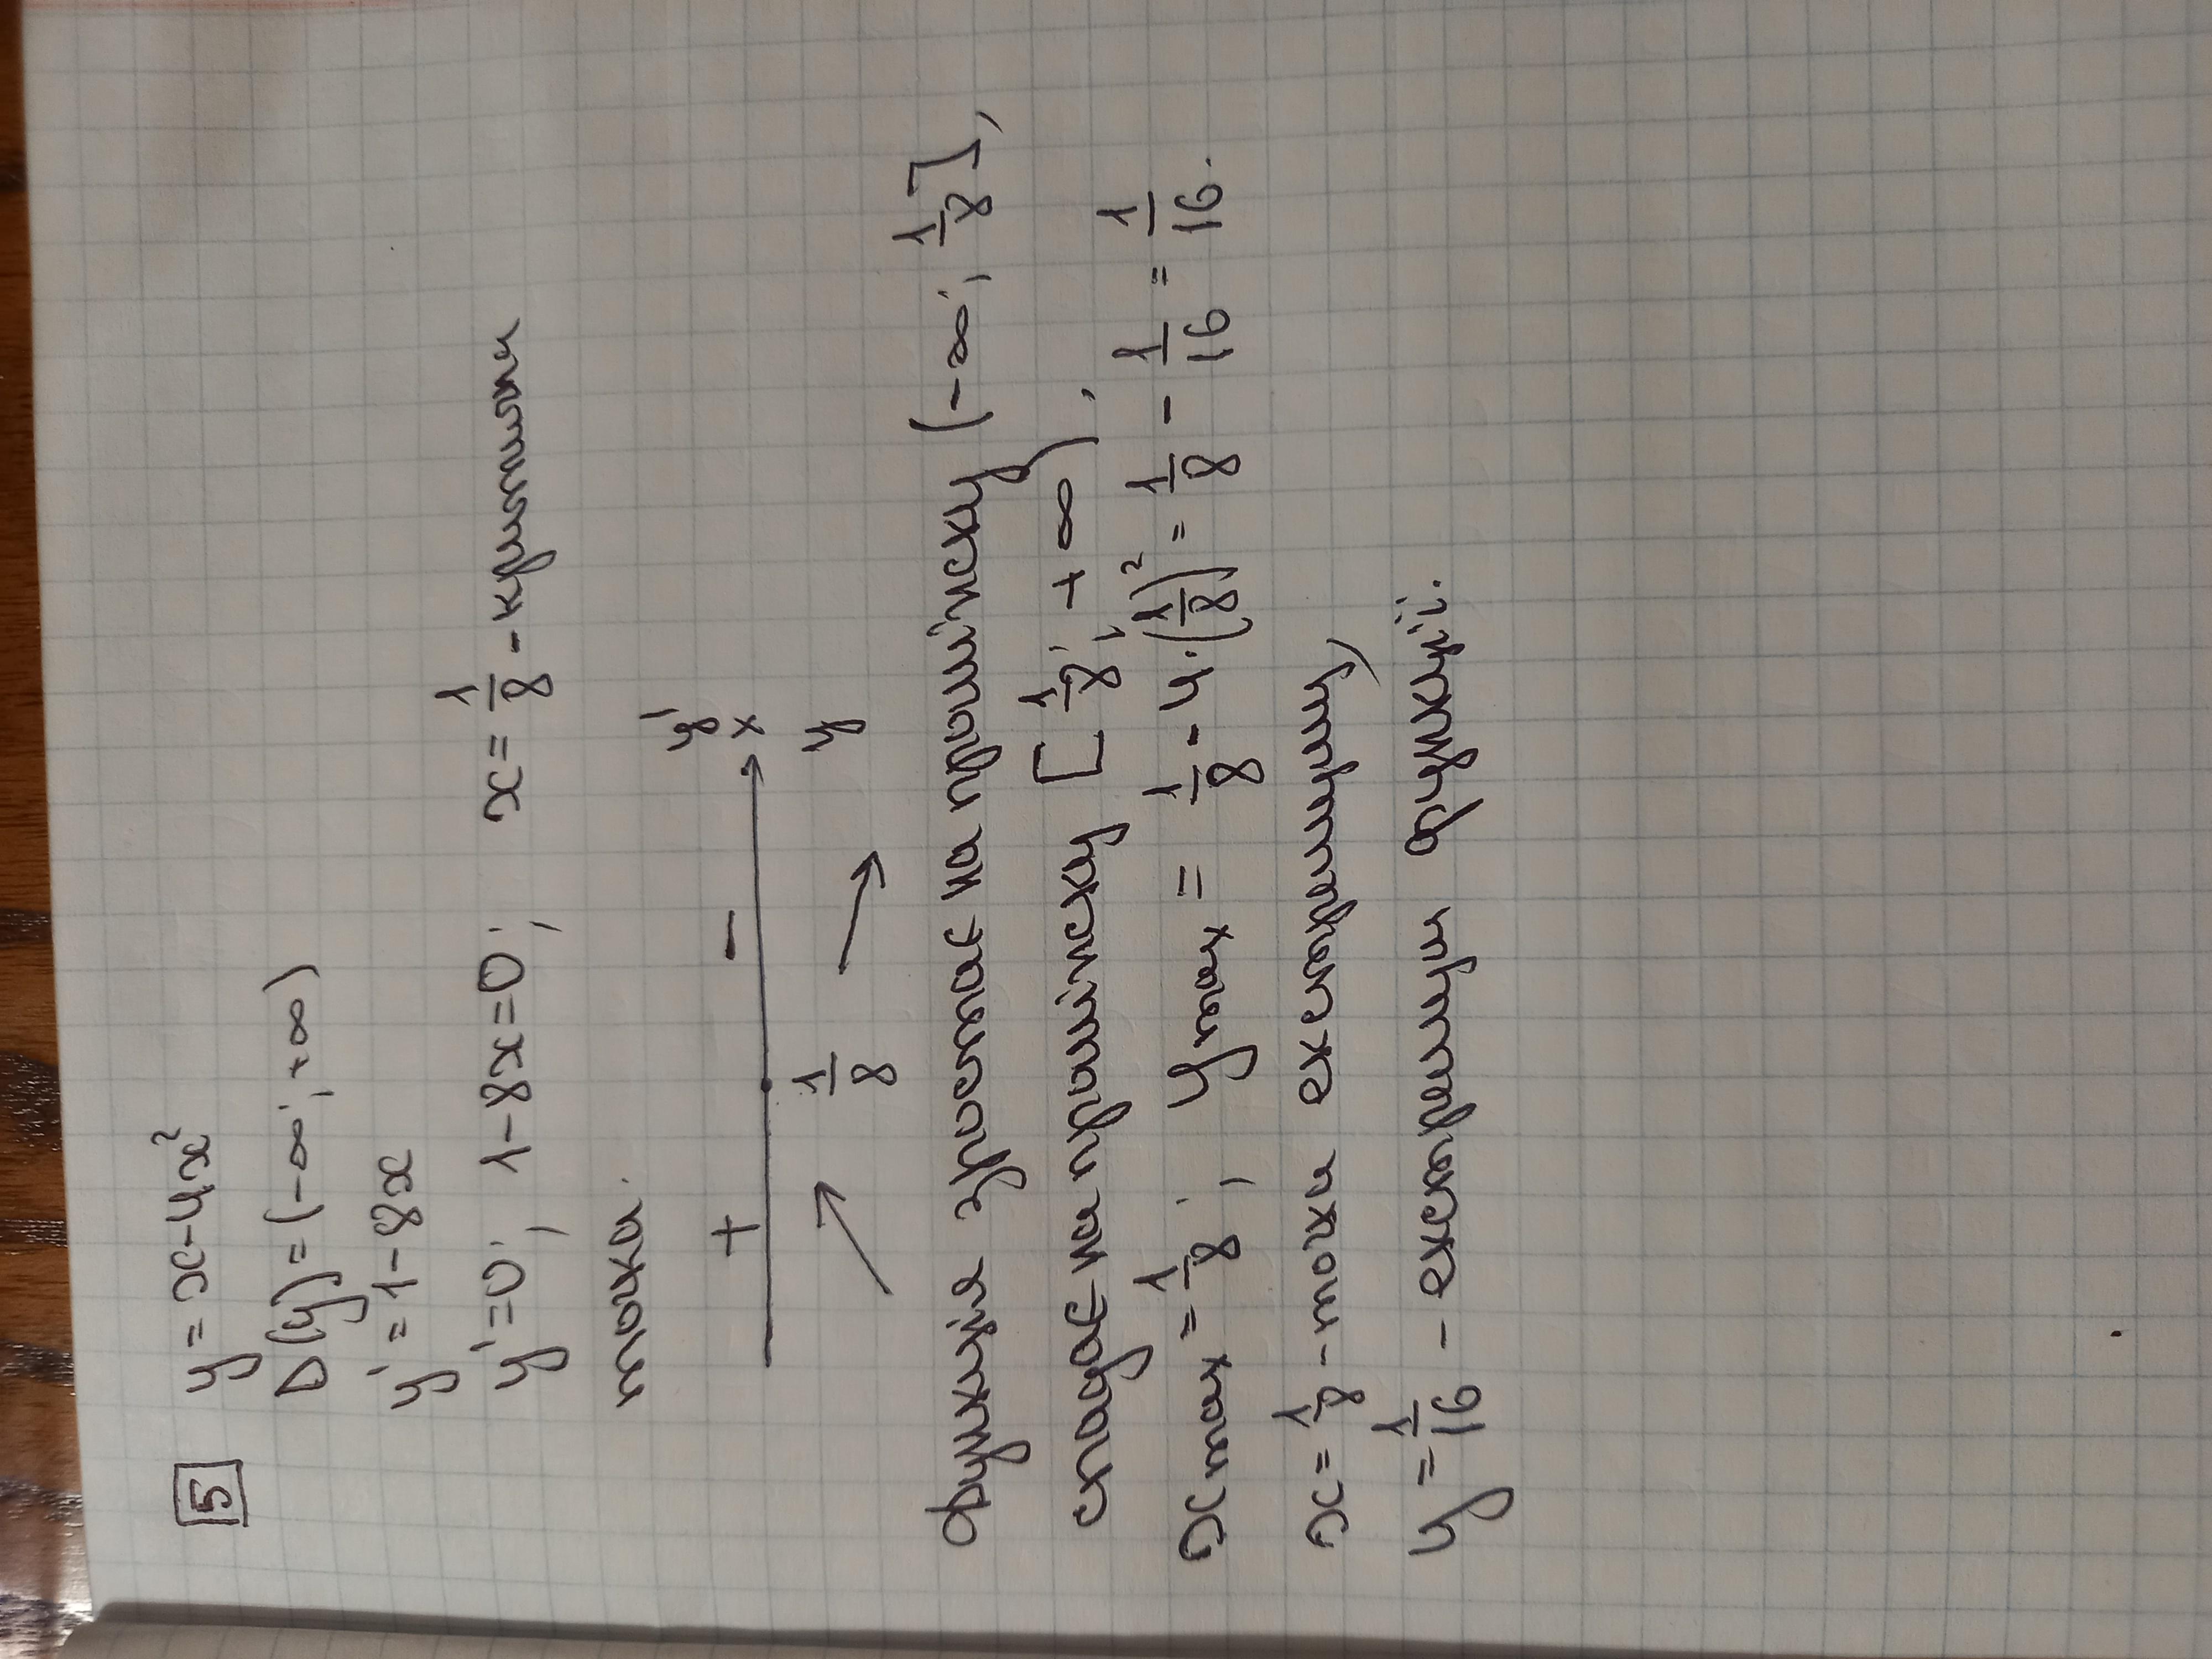 5 y = x - 4x²
D(y) = (-∞; +∞)
y' = 1 - 8x
y' = 0; 1 - 8x = 0; x = 1/8 - критична
точка.
+ - y'
x
1/8 y
функція зростає на проміжку (-∞; 1/8],
спадає на проміжку [1/8; +∞).
xmax = 1/8; ymax = 1/8 - 4·(1/8)² = 1/8 - 1/16 = 1/16.
x = 1/8 - точка екстремуму,
y = 1/16 - екстремум функції.